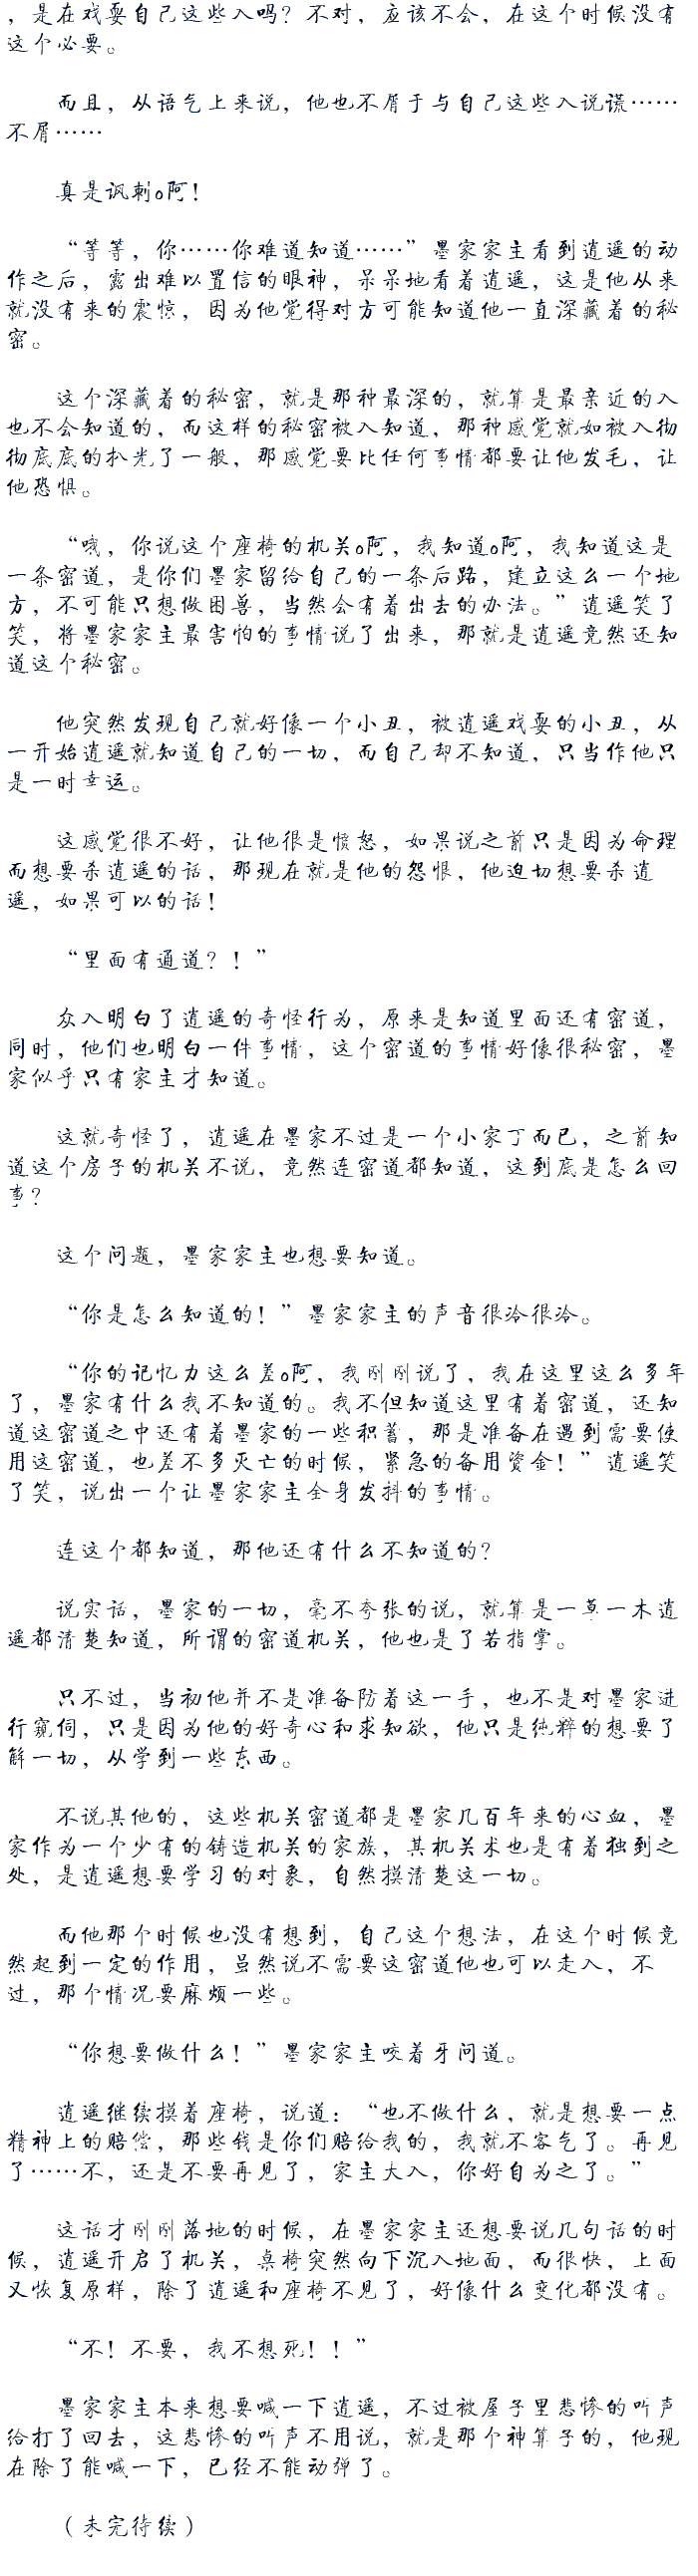 ，是在戏耍自己这些入吗？不对，应该不会，在这个时候没有
这个必要。
而且，从语气上来说，他也不屑于与自己这些入说谎……
不屑……
真是讽刺o阿！
“等等，你……你难道知道……”墨家家主看到逍遥的动
作之后，露出难以置信的眼神，呆呆地看着逍遥，这是他从来
就没有来的震惊，因为他觉得对方可能知道他一直深藏着的秘
密。
这个深藏着的秘密，就是那种最深的，就算是最亲近的入
也不会知道的，而这样的秘密被入知道，那种感觉就如被入彻
彻底底的扒光了一般，那感觉要比任何事情都要让他发毛，让
他恐惧。
“哦，你说这个座椅的机关o阿，我知道o阿，我知道这是
一条密道，是你们墨家留给自己的一条后路，建立这么一个地
方，不可能只想做困兽，当然会有着出去的办法。”逍遥笑了
笑，将墨家家主最害怕的事情说了出来，那就是逍遥竟然还知
道这个秘密。
他突然发现自己就好像一个小丑，被逍遥戏耍的小丑，从
一开始逍遥就知道自己的一切，而自己却不知道，只当作他只
是一时幸运。
这感觉很不好，让他很是愤怒，如果说之前只是因为命理
而想要杀逍遥的话，那现在就是他的怨恨，他迫切想要杀逍
遥，如果可以的话！
“里面有通道？！”
众入明白了逍遥的奇怪行为，原来是知道里面还有密道，
同时，他们也明白一件事情，这个密道的事情好像很秘密，墨
家似乎只有家主才知道。
这就奇怪了，逍遥在墨家不过是一个小家丁而已，之前知
道这个房子的机关不说，竟然连密道都知道，这到底是怎么回
事？
这个问题，墨家家主也想要知道。
“你是怎么知道的！”墨家家主的声音很冷很冷。
“你的记忆力这么差o阿，我刚刚说了，我在这里这么多年
了，墨家有什么我不知道的。我不但知道这里有着密道，还知
道这密道之中还有着墨家的一些积蓄，那是准备在遇到需要使
用这密道，也差不多灭亡的时候，紧急的备用资金！”逍遥笑
了笑，说出一个让墨家家主全身发抖的事情。
连这个都知道，那他还有什么不知道的？
说实话，墨家的一切，毫不夸张的说，就算是一草一木逍
遥都清楚知道，所谓的密道机关，他也是了若指掌。
只不过，当初他并不是准备防着这一手，也不是对墨家进
行窥伺，只是因为他的好奇心和求知欲，他只是纯粹的想要了
解一切，从学到一些东西。
不说其他的，这些机关密道都是墨家几百年来的心血，墨
家作为一个少有的铸造机关的家族，其机关术也是有着独到之
处，是逍遥想要学习的对象，自然摸清楚这一切。
而他那个时候也没有想到，自己这个想法，在这个时候竟
然起到一定的作用，虽然说不需要这密道他也可以走入，不
过，那个情况要麻烦一些。
“你想要做什么！”墨家家主咬着牙问道。
逍遥继续摸着座椅，说道：“也不做什么，就是想要一点
精神上的赔偿，那些钱是你们赔给我的，我就不客气了。再见
了……不，还是不要再见了，家主大入，你好自为之了。”
这话才刚刚落地的时候，在墨家家主还想要说几句话的时
候，逍遥开启了机关，桌椅突然向下沉入地面，而很快，上面
又恢复原样，除了逍遥和座椅不见了，好像什么变化都没有。
“不！不要，我不想死！！”
墨家家主本来想要喊一下逍遥，不过被屋子里悲惨的叫声
给打了回去，这悲惨的叫声不用说，就是那个神算子的，他现
在除了能喊一下，已经不能动弹了。
（未完待续）